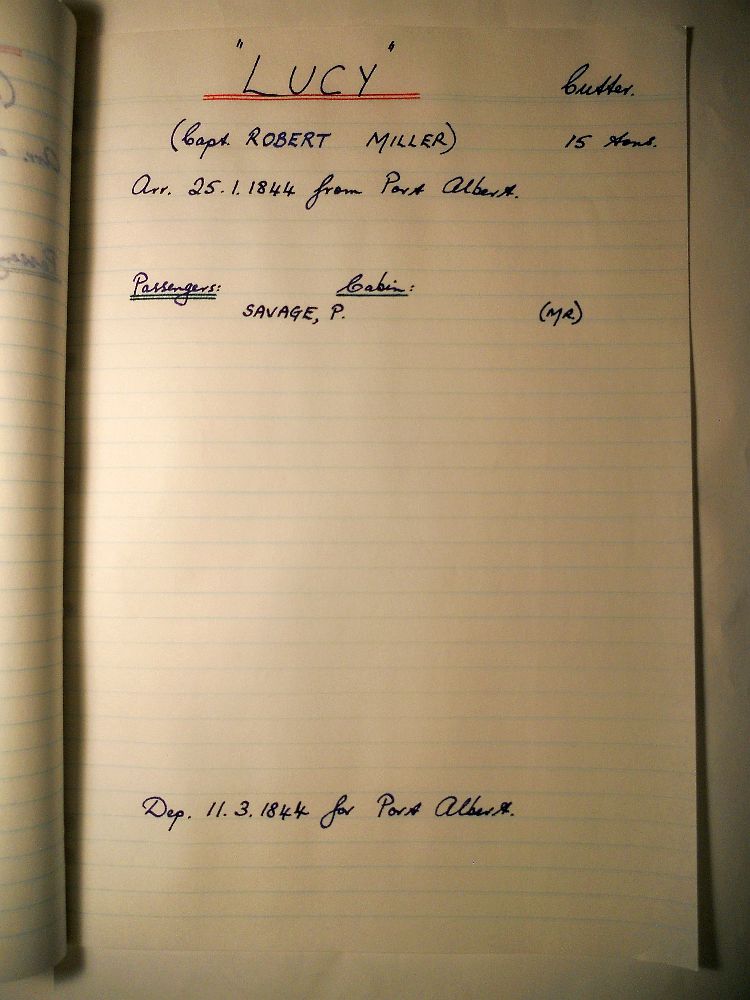 "LUCY" Cutter.
(Capt. ROBERT MILLER) 15 tons.
Arr. 25.1.1844 from Port Albert.
Passengers: Cabin:
SAVAGE, P. (MR)
Dep. 11.3.1844 for Port Albert.